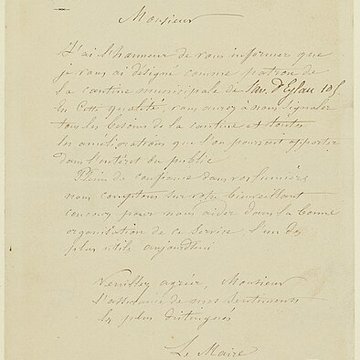 Monsieur
J'ai l'honneur de vous informer que
je vous ai désigné comme patron de
la cantine municipale de l'av. d'Eylau 105
En cette qualité, vous aurez à nous signaler
tous les besoins de la cantine et toutes
les améliorations que l'on pourrait apporter
dans l'intérêt du public
Plein de confiance dans vos lumières
nous comptons sur votre bienveillant
concours pour nous aider dans la bonne
organisation de ce service, l'un des
plus utile aujourd'hui
Veuillez agréer, Monsieur
l'assurance de mes sentiments
les plus distingués
Le Maire